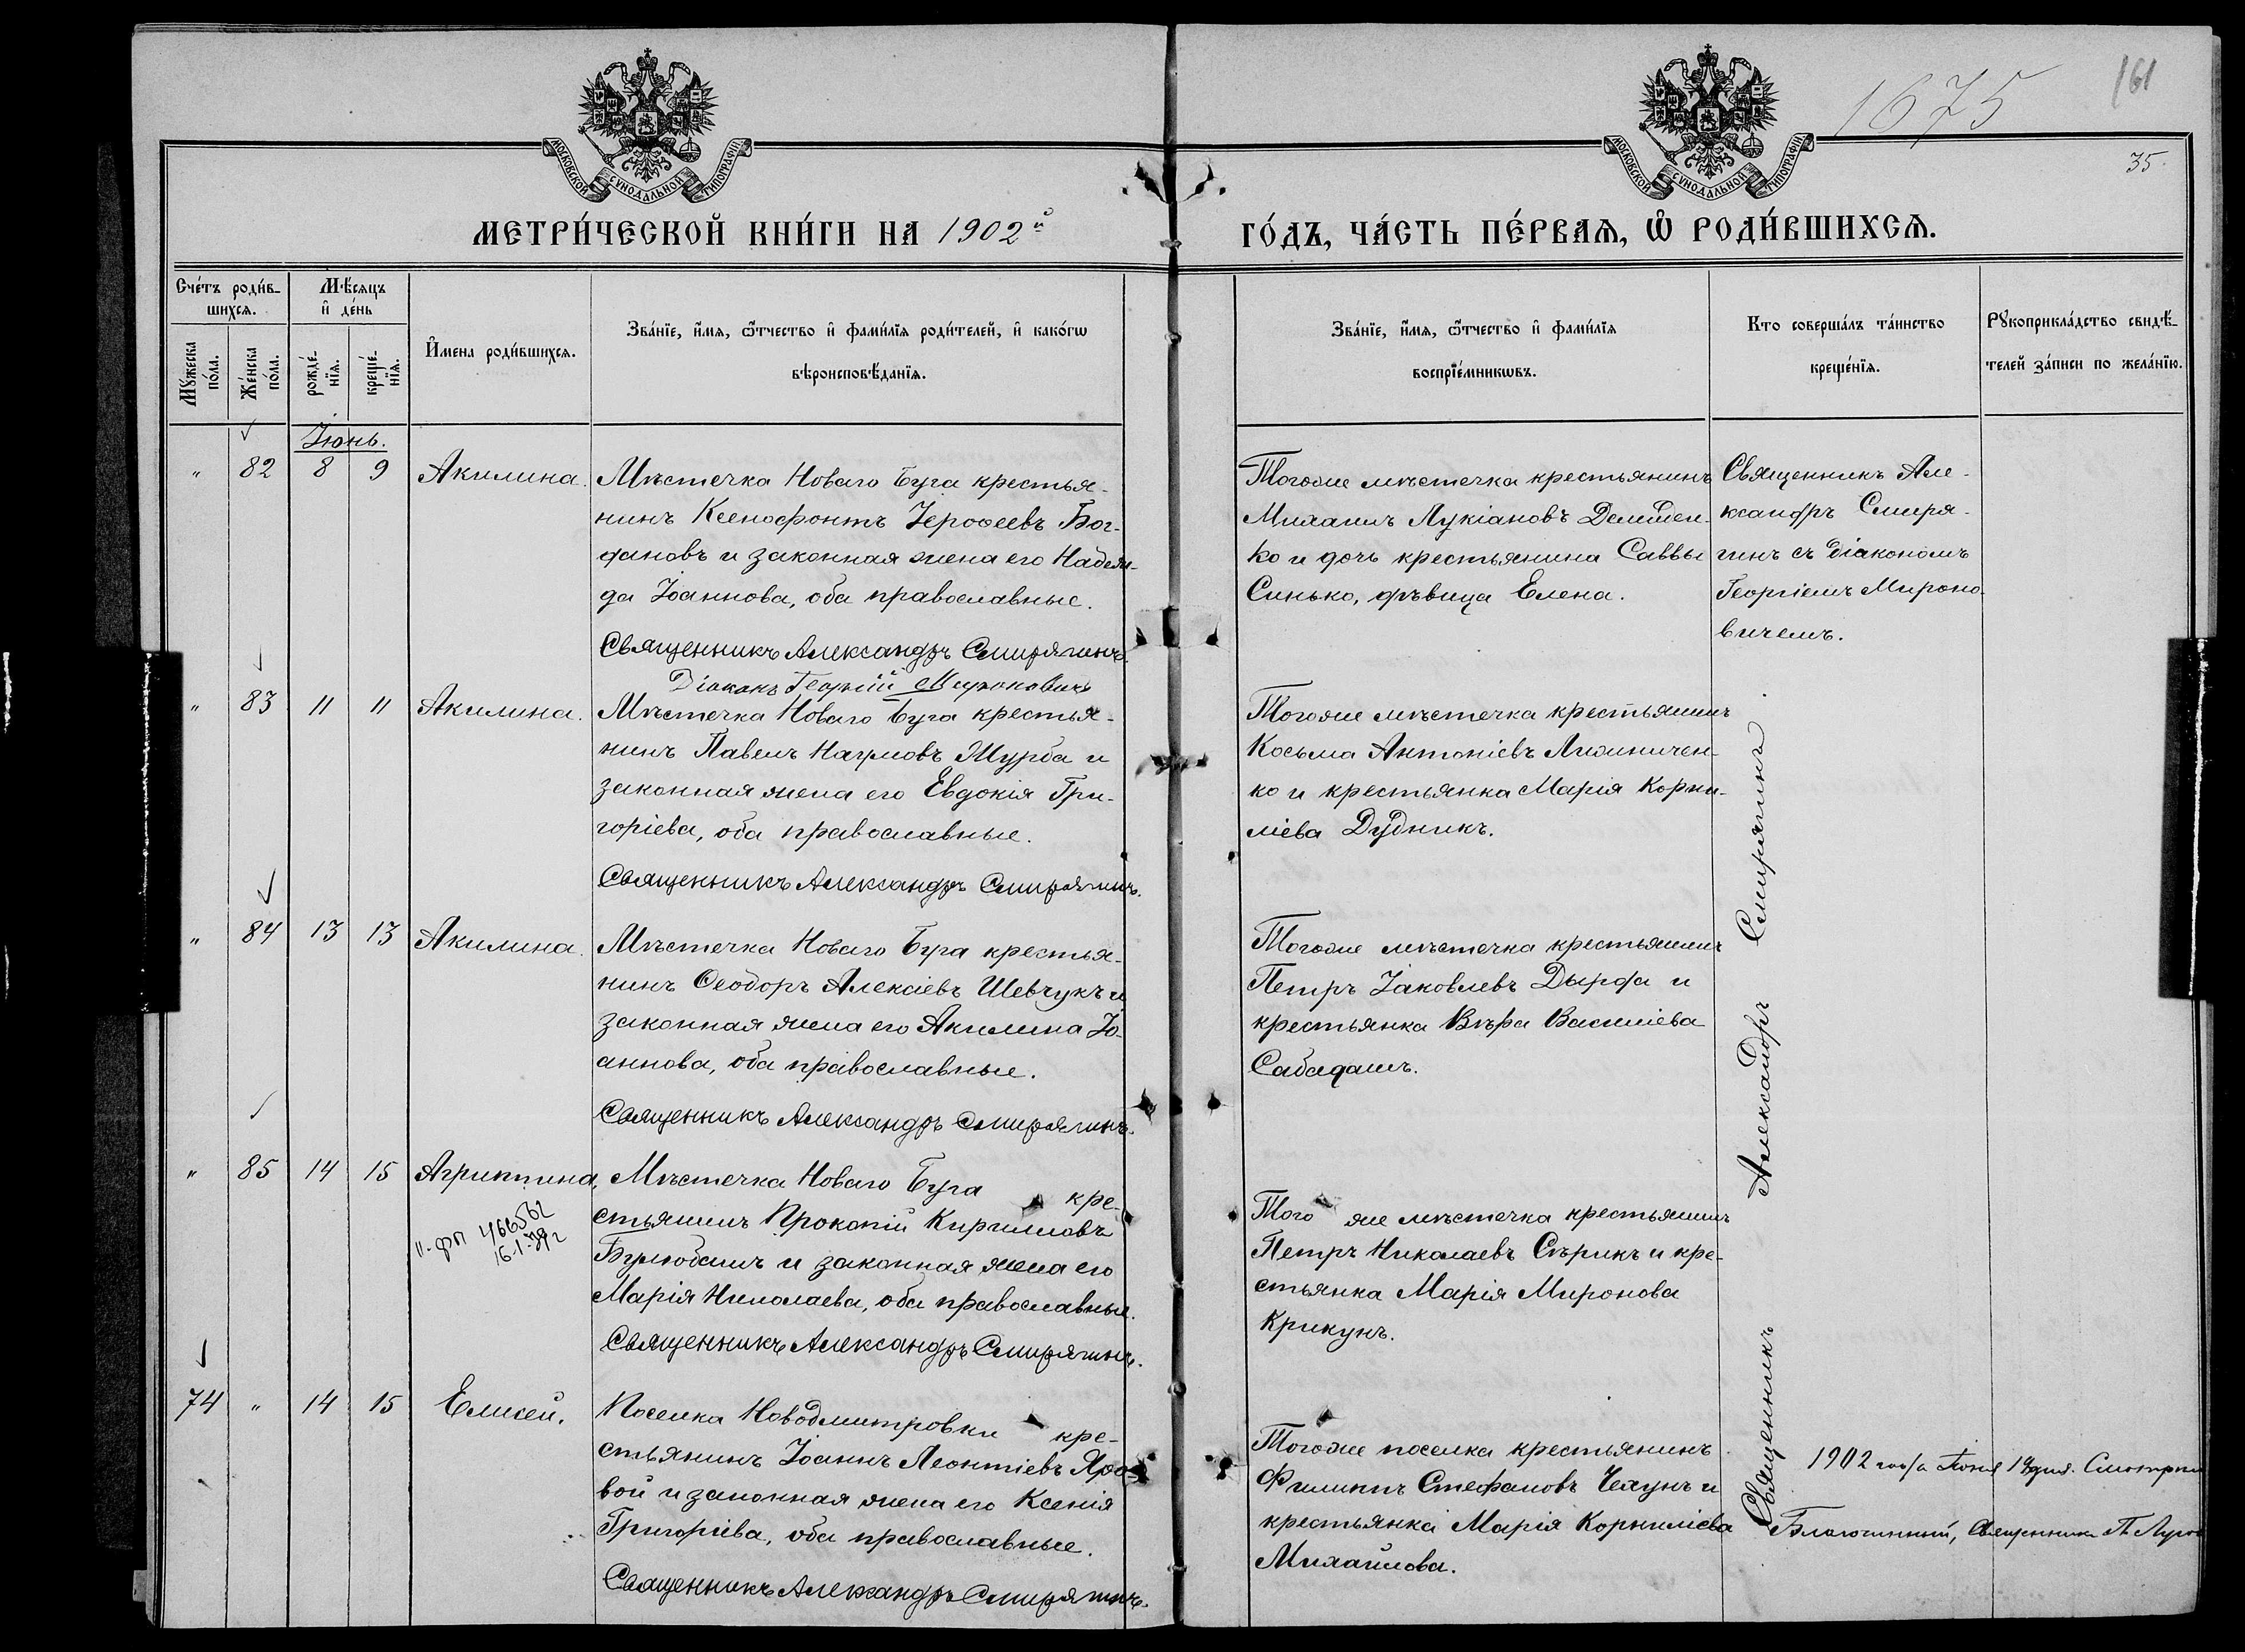 1675
161
35.
МОСКОВСКОЙ СѴНОДАЛЬНОЙ ТИПОГРАФІИ
МОСКОВСКОЙ СѴНОДАЛЬНОЙ ТИПОГРАФІИ
МЕТРИ́ЧЕСКОЙ КНИ́ГИ НА 1902й
ГО́ДЪ, ЧА́СТЬ ПЕ́РВАѦ, Ѡ҆ РОДИ́ВШИХСѦ.
Сче́тъ роди́в-
шихсѧ.
Мꙋ́жеска
по́ла.
Же́нска
по́ла.
Мѣ́сѧцъ
и҆ де́нь
рожде́-
нїѧ.
креще́-
нїѧ.
И҆мена роди́вшихсѧ.
Зва́нїе, и҆́мѧ, ѻ҆́тчество и҆ фами́лїѧ роди́телей, и҆ како́гѡ
вѣроисповѣ́данїѧ.
Зва́нїе, и҆́мѧ, ѻ҆́тчество и҆ фами́лїѧ
воспрїе́мникѡвъ.
Кто соверша́лъ та́инство
креще́нїѧ.
Рꙋкоприкла́дство свидѣ́-
телей за́писи по жела́нїю.
Іюнь.
" 82 8 9 Акилина.
Мѣстечка Новаго Буга крестья-
нинъ Ксенофонтъ Іерофеевъ Бог-
дановъ и законная жена его Надеж-
да Іоаннова, оба православные.
Священникъ Александръ Смирягинъ.
Діаконъ Георгій Мироновичъ
Тогоже мѣстечка крестьянинъ
Михаилъ Лукіановъ Демшен-
ко и дочь крестьянина Саввы
Синько, дѣвица Елена.
Священникъ Але-
ксандръ Смиря-
гинъ съ діакономъ
Георгіемъ Мироно-
вичемъ.
" 83 11 11 Акилина.
Мѣстечка Новаго Буга крестья-
нинъ Павелъ Наумовъ Журба и
законная жена его Евдокія Гри-
горіева, оба православные.
Священникъ Александръ Смирягинъ.
Тогоже мѣстечка крестьянинъ
Косьма Антоніевъ
ко и крестьянка Марія Корни-
ліева Дудникъ.
" 84 13 13 Акилина.
Мѣстечка Новаго Буга крестья-
нинъ Ѳеодоръ Алексіевъ Шевчукъ и
законная жена его Акилина Іо-
аннова, оба православные.
Священникъ Александръ Смирягинъ.
Тогоже мѣстечка крестьянинъ
Петръ Іаковлевъ Дырда и
крестьянка Вѣра Василіева
Сабадашъ.
" 85 14 15 Агриппина.
Мѣстечка Новаго Буга кре-
стьянинъ Прокопій Кирилловъ
Бурлобашъ и законная жена его
Марія Николаева, оба православные.
Священникъ Александръ Смирягинъ.
Того же мѣстечка крестьянинъ
Петръ Николаевъ Сѣрикъ и кре-
стьянка Марія Миронова
Крикунъ.
74 " 14 15 Елисей.
Поселка Новодмитровки кре-
стьянинъ Іоаннъ Леонтіевъ Яро-
вой и законная жена его Ксенія
Григоріева, оба православные.
Священникъ Александръ Смирягинъ.
Тогоже поселка крестьянинъ
Филиппъ Стефановъ Чехунъ и
крестьянка Марія Корниліева
Михайлова.
Священникъ Александръ Смирягинъ
1902 года Іюня 19 дня. Смотрѣлъ
Благочинный, Священникъ